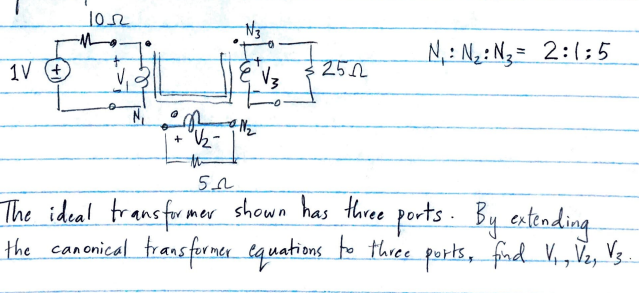 10Ω
N3
N1 : N2 : N3 = 2 : 1 : 5
1V + + V1 - + V3 - 25Ω
N1 N2
+ V2 -
5Ω
The ideal transformer shown has three ports. By extending
the canonical transformer equations to three ports, find V1, V2, V3.